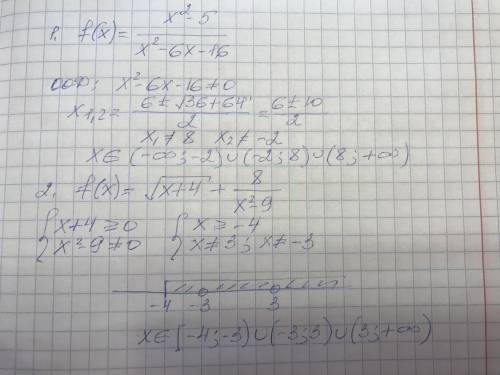 1. f(x) = (x² - 5) / (x² - 6x - 16)
ООФ: x² - 6x - 16 ≠ 0
x₁,₂ = (6 ± √(36 + 64)) / 2 = (6 ± 10) / 2
x₁ ≠ 8 x₂ ≠ -2
x ∈ (-∞; -2) ∪ (-2; 8) ∪ (8; +∞)
2. f(x) = √(x+4) + 8 / (x² - 9)
{ x+4 ≥ 0 { x ≥ -4
{ x² - 9 ≠ 0 { x ≠ 3; x ≠ -3
-4 -3 3
x ∈ [-4; -3) ∪ (-3; 3) ∪ (3; +∞)